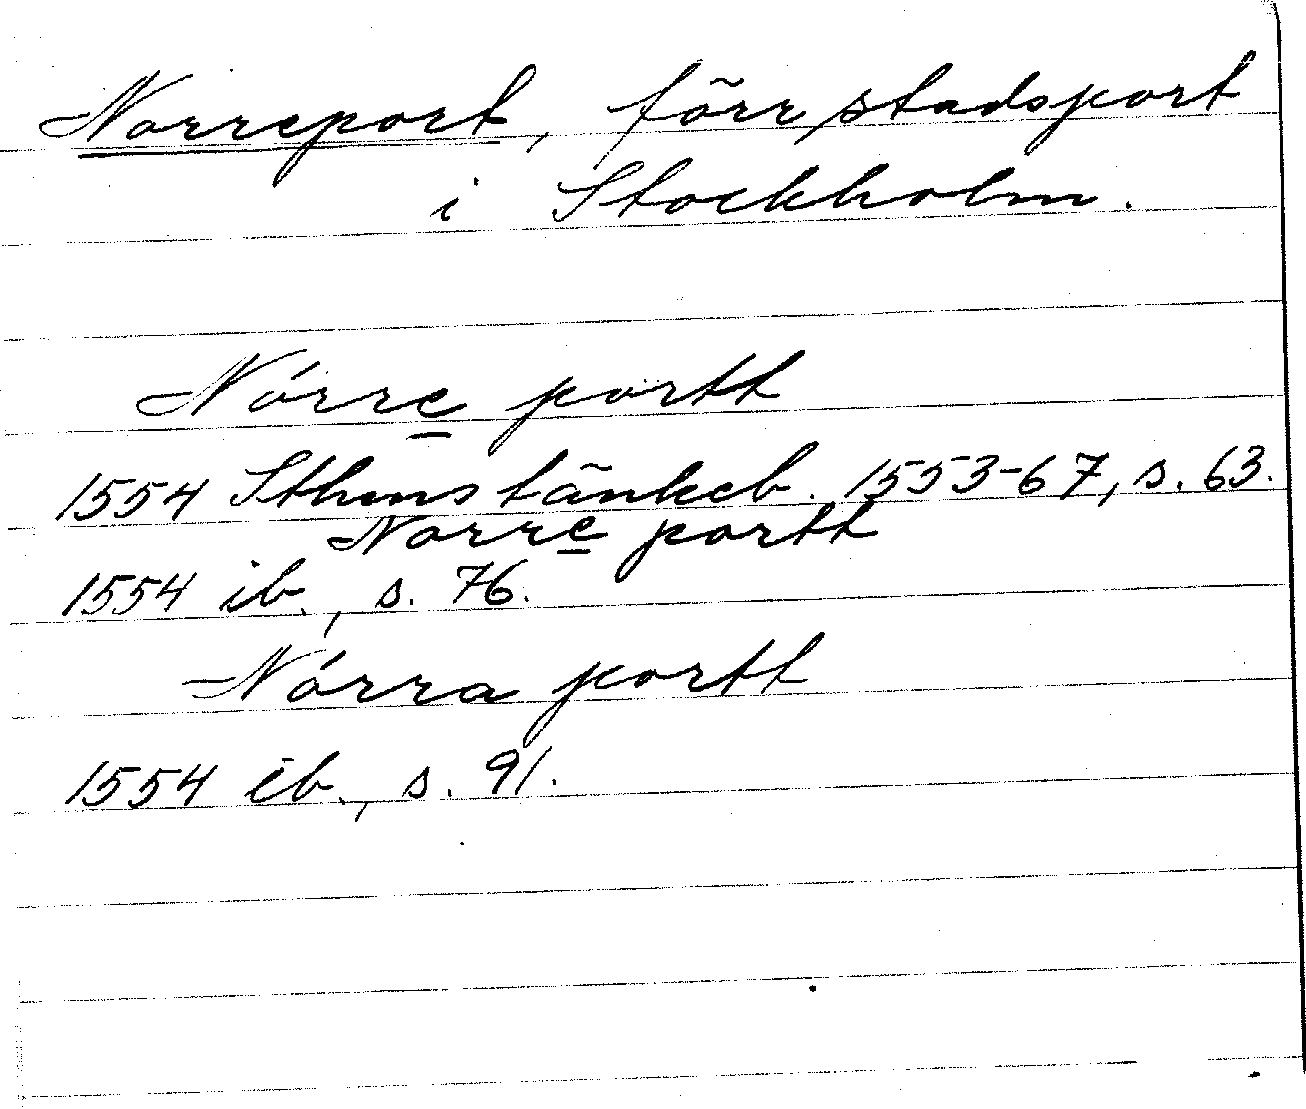 Norreport, förr stadsport
i Stockholm.
Nórre portt
1554 Sthms tänkeb. 1553-67, s. 63.
Norre portt
1554 ib., s. 76.
Nórra portt
1554 ib., s. 91.